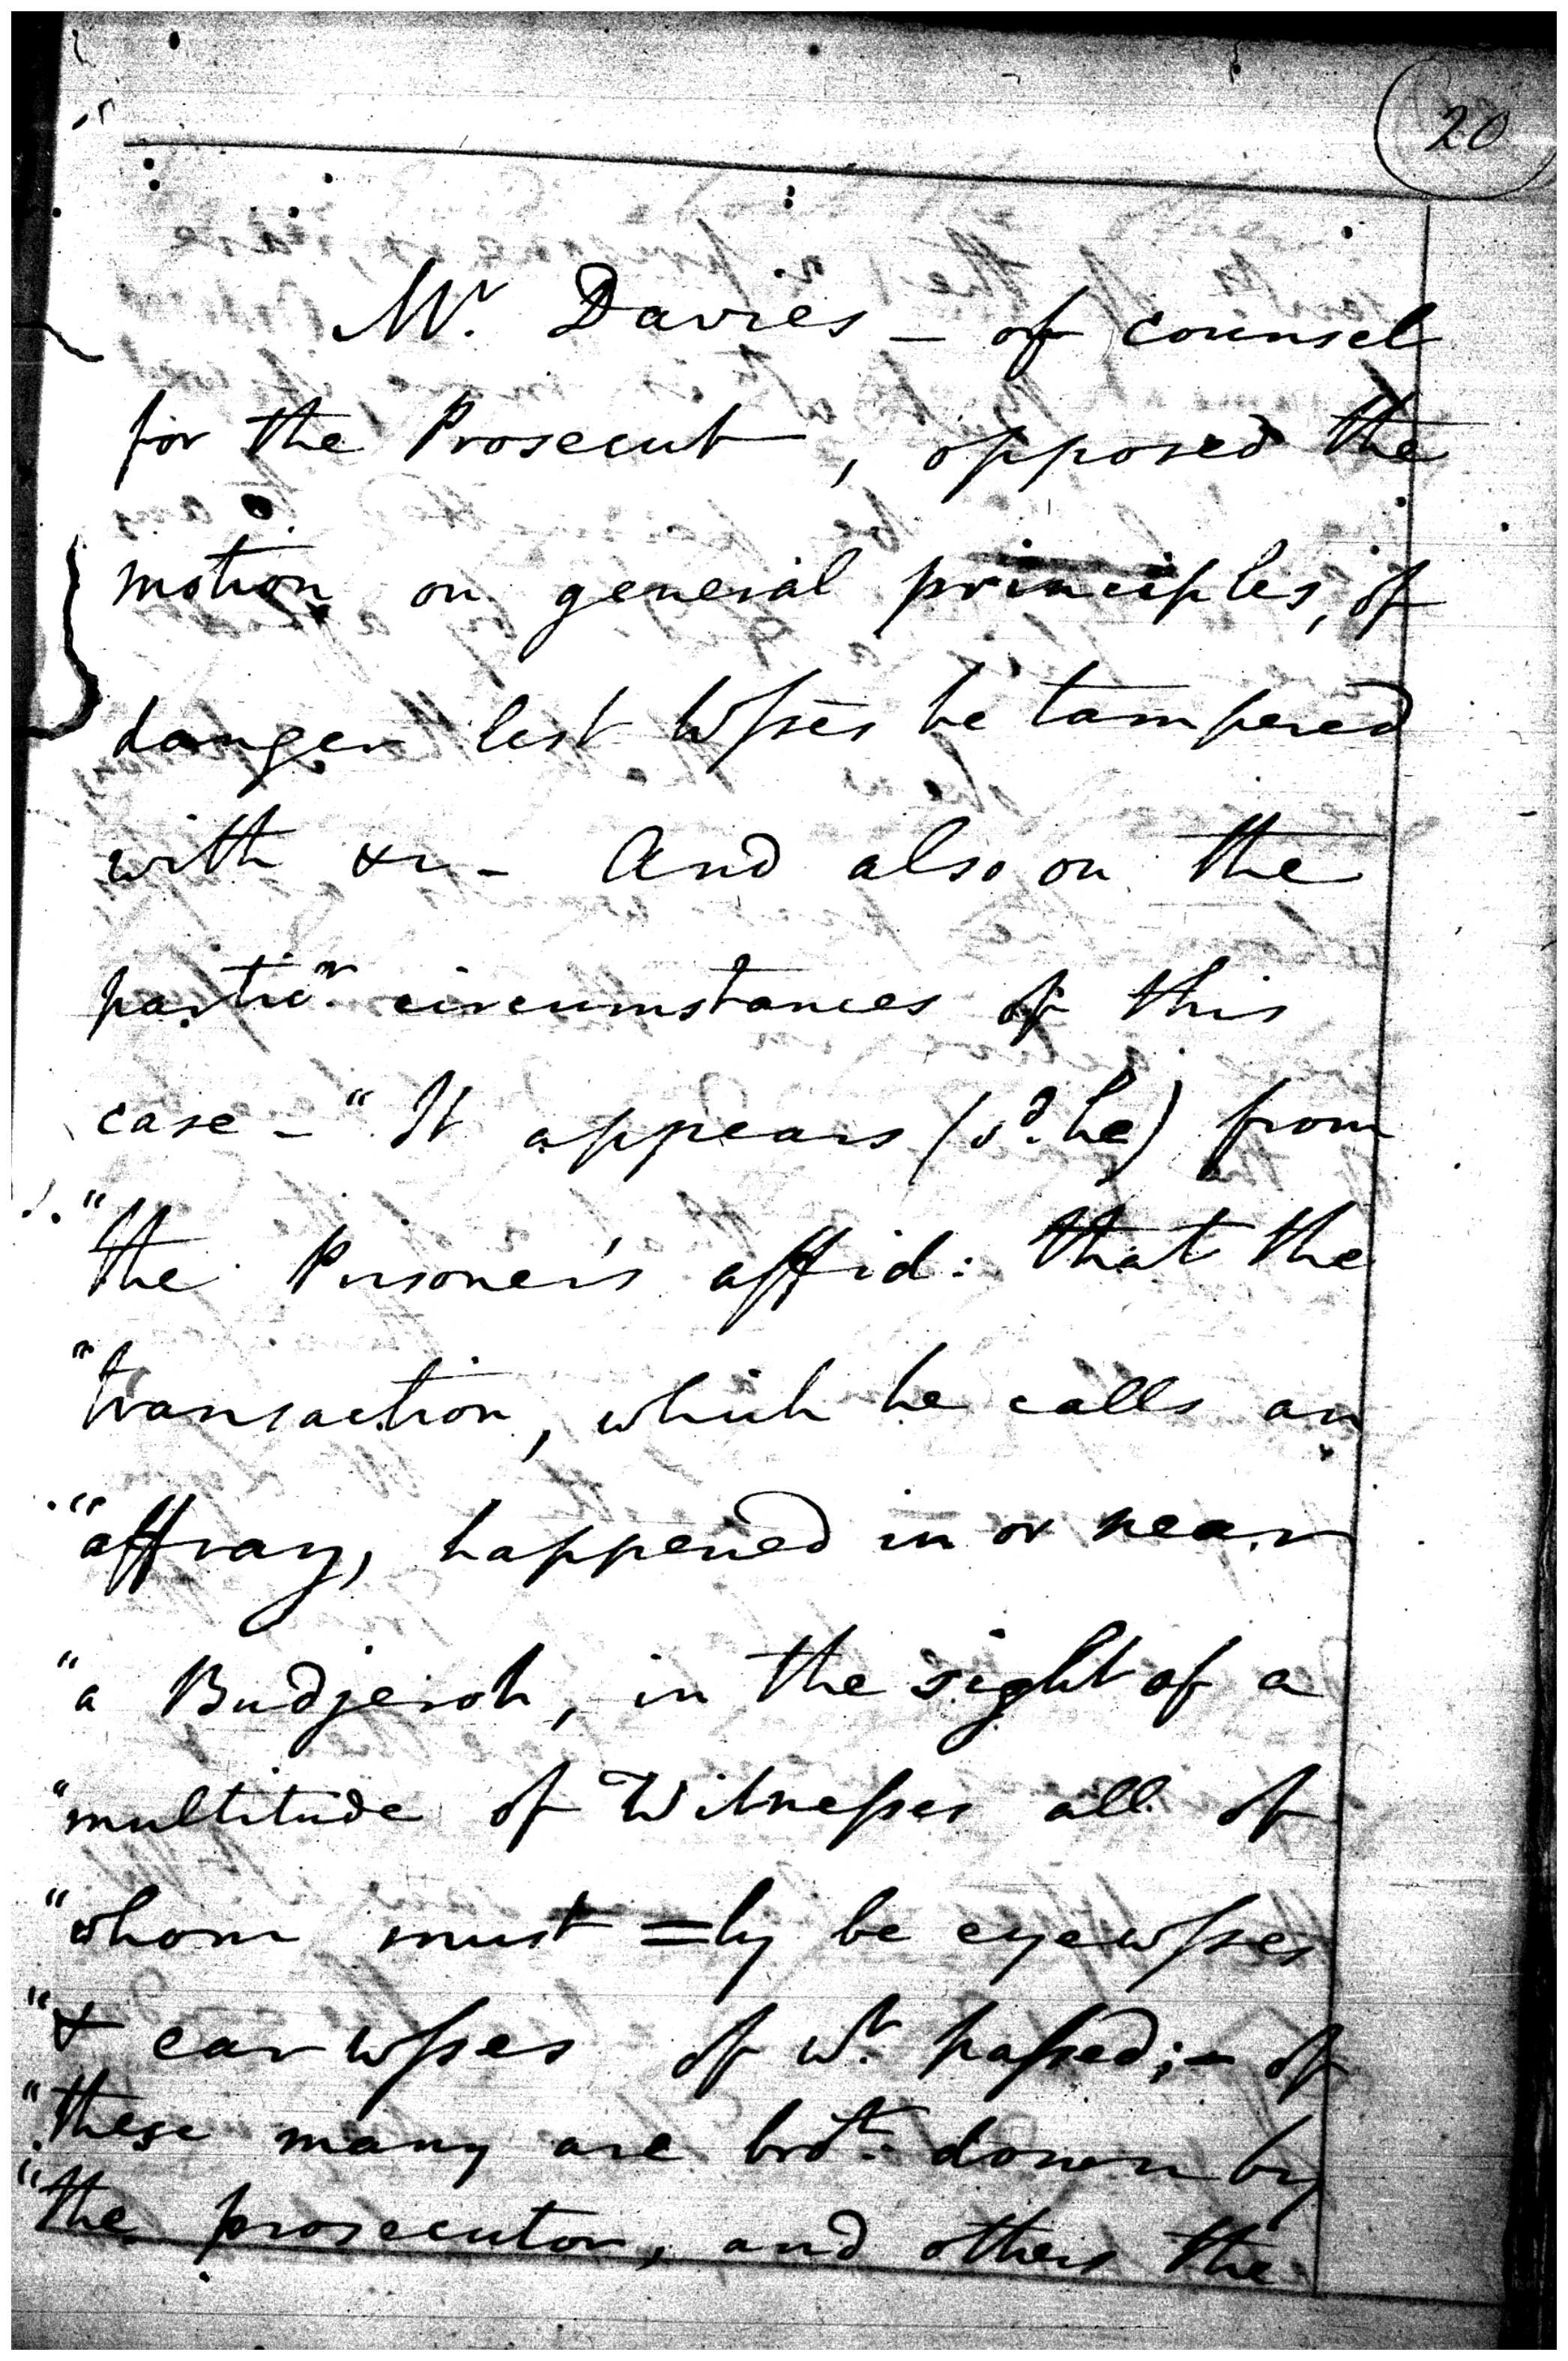 20
Mr. Davies – of counsel
for the Prosecut, opposed the
motion on general principles, of
danger lest Wſses be tampered
with &c – And also on the
particr. circumstances of this
case – "It appears (sd. he) from
"the Prisoner's affid: that the
"transaction, which he calls an
"affray, happened in or near
"a Budjeroh, in the sight of a
"multitude of Witneſses all of
"whom must =ly be eyewſses
"& ear wſses of wt. paſsed; – of
"these many are brot. down by
"the prosecutor, and others the